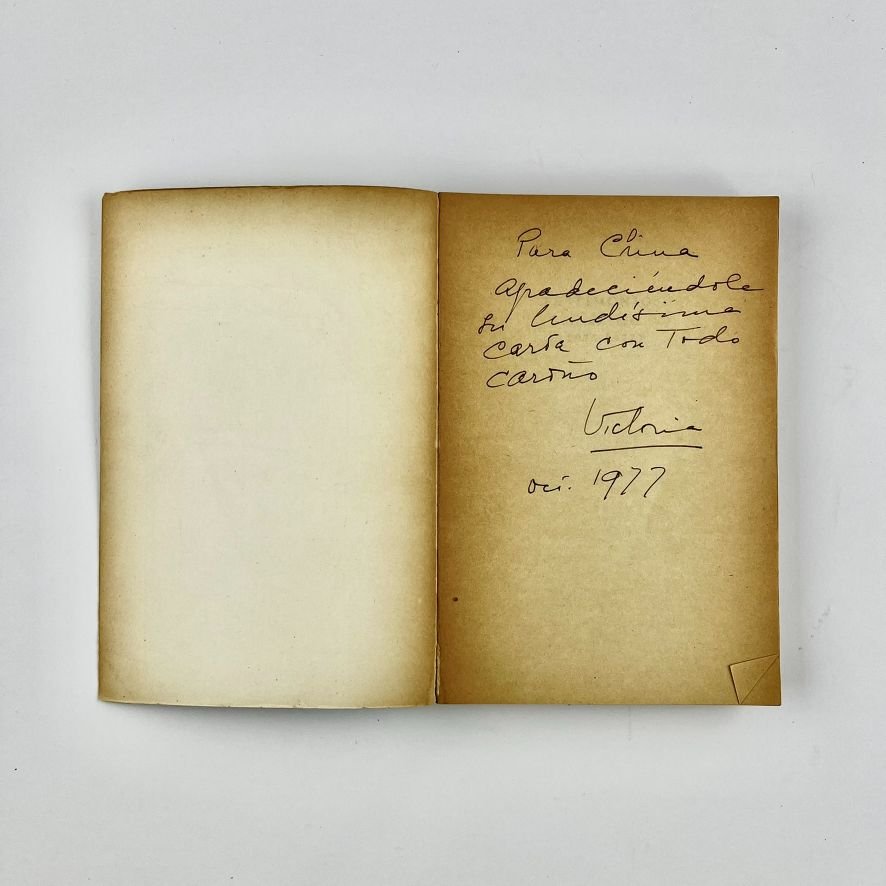 Para China
agradeciéndole
su lindísima
carta con Todo
cariño
Victoria
oct. 1977